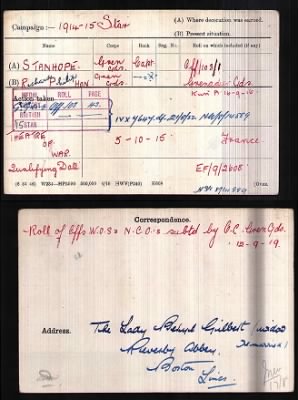 Campaign :— 1914-15 Star
(A) Where decoration was earned.
(B) Present situation.
Name Corps Rank Reg. No. Roll on which included (if any)
(A) STANHOPE. Gren Gds Capt. Off/103/1
(B) HON Gren Gds Grenadier Gds.
K in A 16-9-16
Action taken
MEDAL ROLL PAGE
VICTORY
BRITISH
15 STAR
IV X
THEATRE OF WAR. 5-10-15. France
Qualifying Date EF/9/2605
(6 34 46) W234—HP5590 500,000 4/19 HWV(P240) K608 [Over.
Correspondence.
Roll of Offs W.O.s & N.C.O.s subtd by O.C. Gren Gds.
12-9-19.
Address.
The Lady Beryl Gilbert (widow
remarried)
Revesby Abbey,
Boston
Lincs.